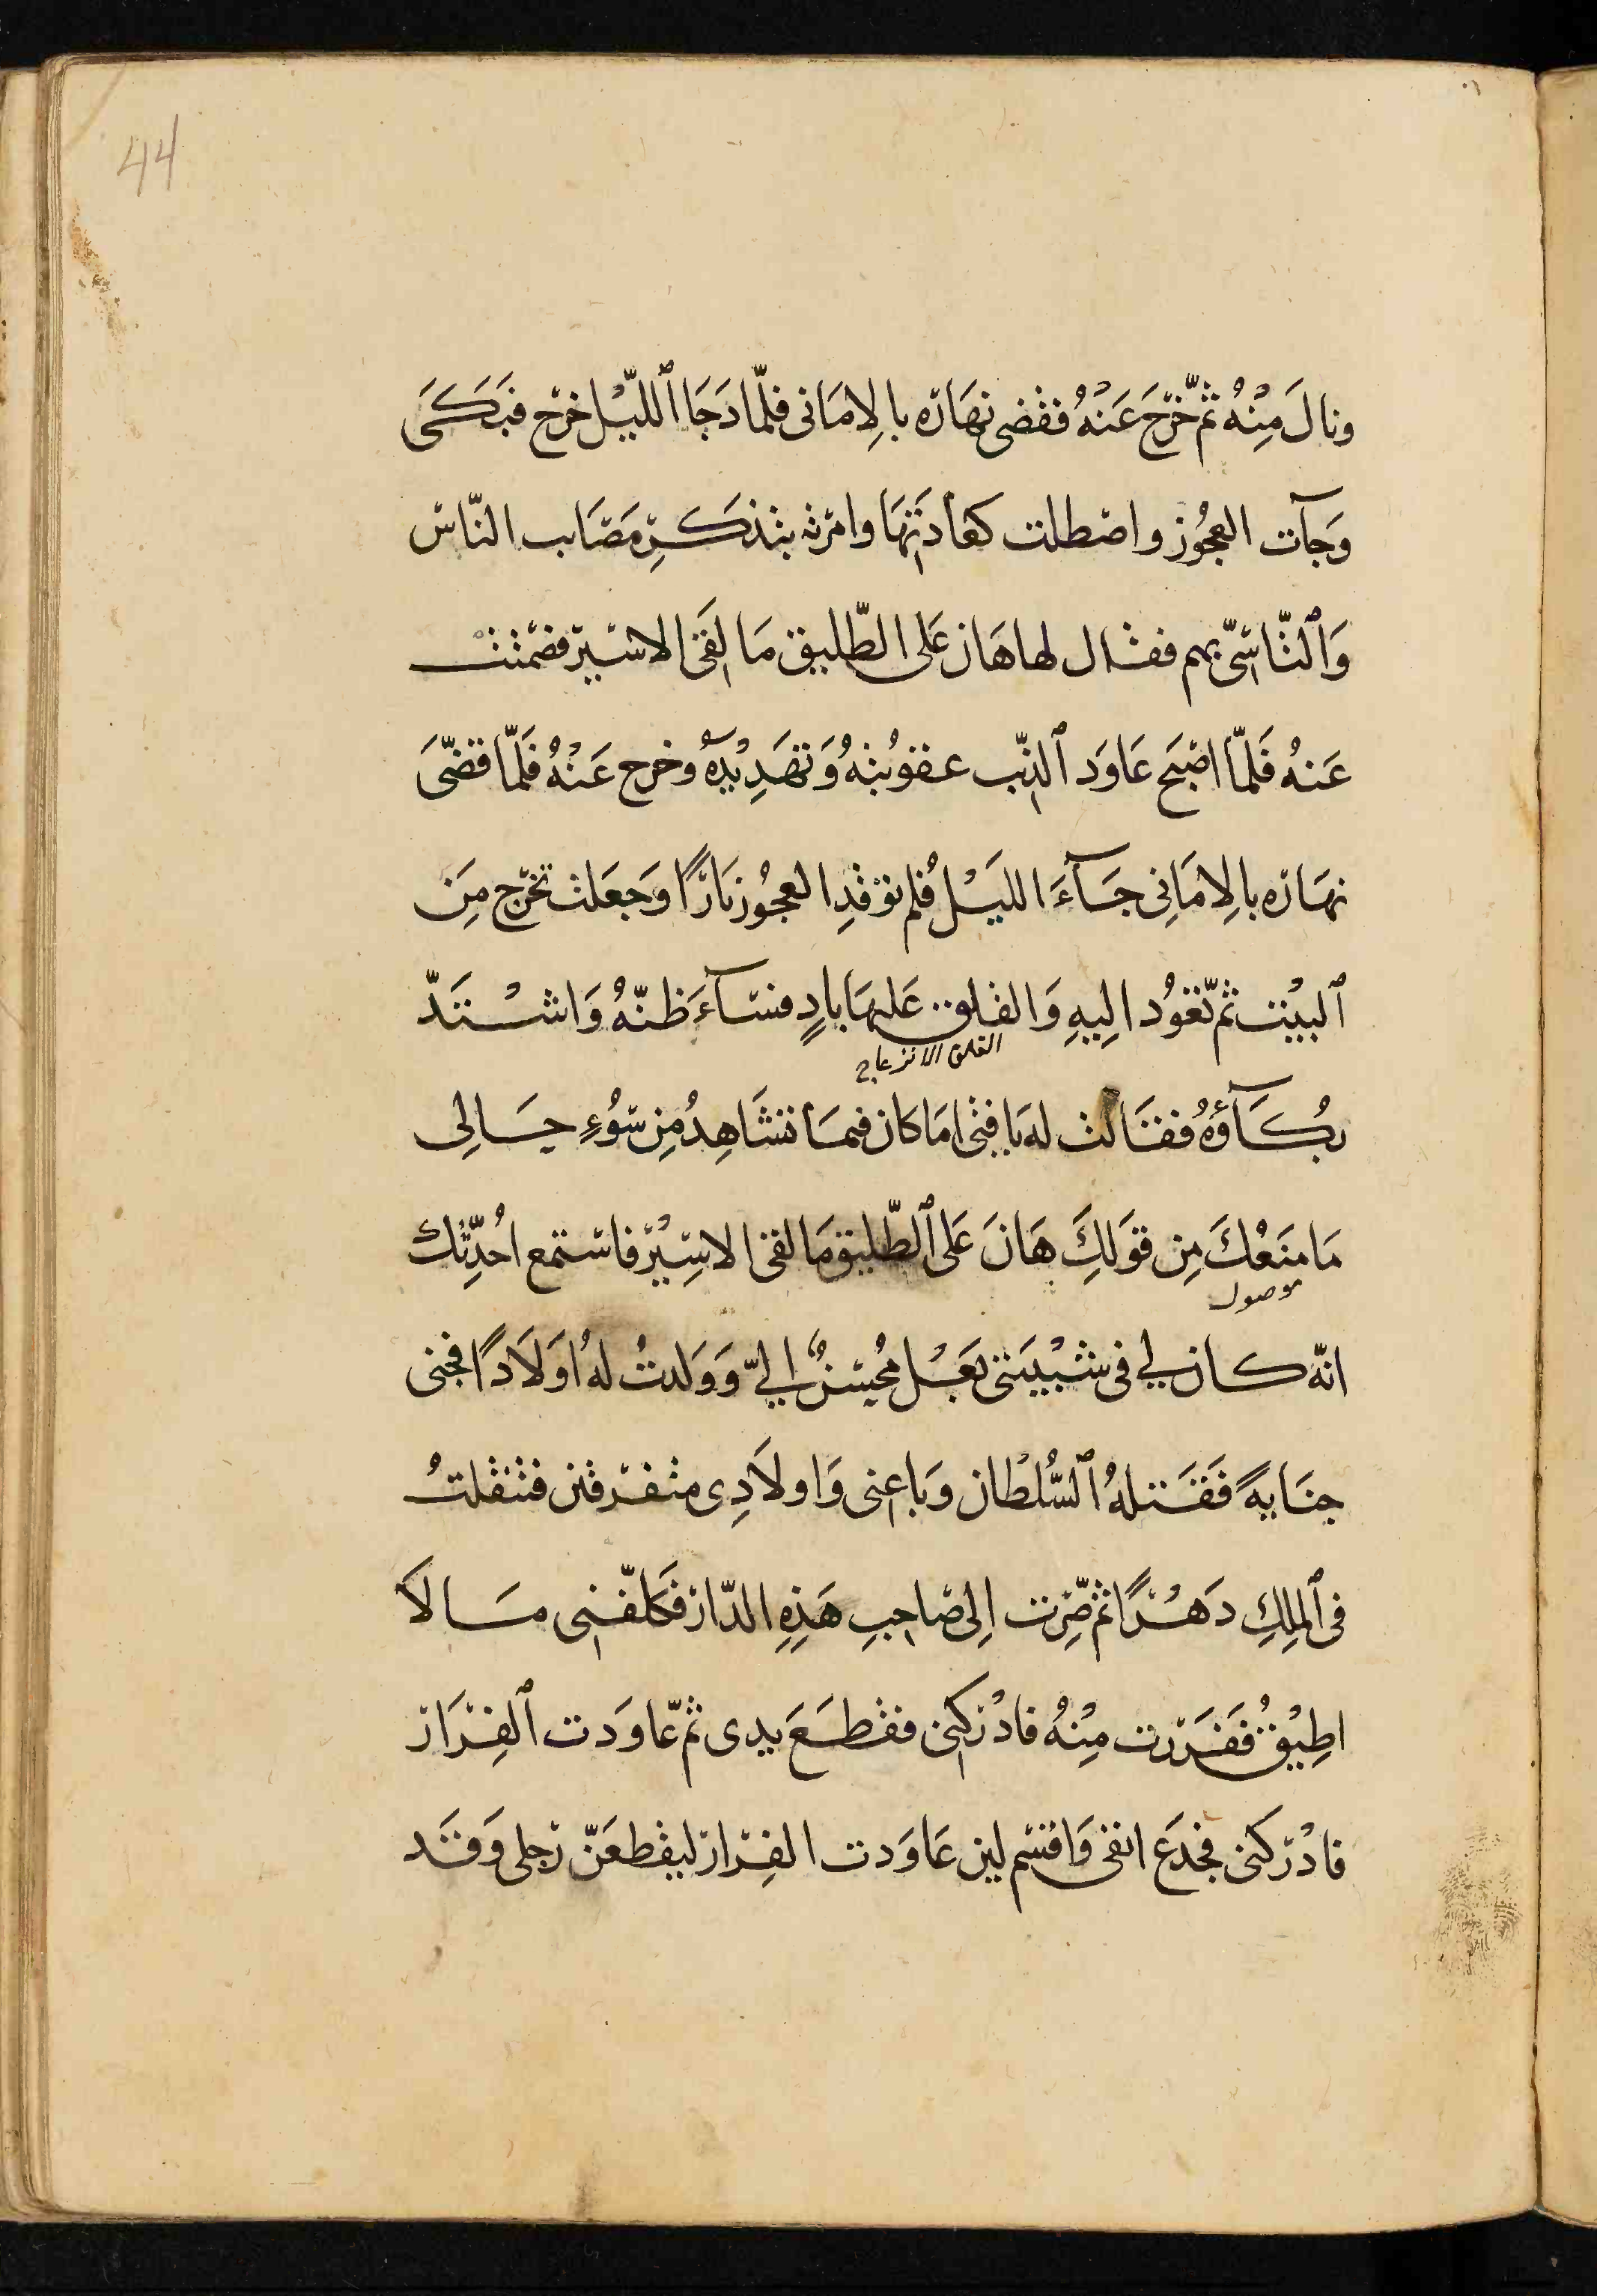 44
ونالَ مِنْهُ ثمّ خَرَجَ عَنْهُ فقضى نهَارَه بالامَانى فلمّا دَجَا ٱلليْل خرج فبَكَى
وَجآت العجُوز واصْطلت كعَادَتهَا وامرته بتذكِر مصَايب النّاس
وَٱلتّاسّى بهم فقال لها هَان عَلى الطّليق مَا لقىَ الاسير فضمنت
عَنهُ فَلمّا اصْبَح عَاوَد ٱلذيب عقوُبتهُ وَتهَدِيْدهُ وخرج عَنْهُ فَلمّا قضىَ
نهَارَه بالامَانِى جَآءَ الليَـْل فلم توْقدِ العجُوز نَارًا وَجعَلت تخرُج مِن
ٱلبيْت ثم تعُوُد اليهِ وَالقلق عَليهَا بادٍ فسَآءَ ظنّهُ وَاشْتَدّ
القلق الانزعاج
بُكَآؤهُ فقَالت له يَا فتى امَا كان فيمَا تشَاهِدُ مِن سُوُءٍ حَالِى
مَا منَعْكَ مِن قوَلكَِ هَانَ عَلى ٱلطّليق مَا لقى الاسِيْر فاستمع احُدِّثك
موصول
انّه كان لي فى شبْيبَتى بَعْل مُحِسْنٌ الىّ وَوَلدتُ لهُ اوَلَادًا فجنى
جنَايهً فَقَتلهُ ٱلسُّلطْان وَباعنى وَاولَادِى متفرقين فتنقلتُ
فى ٱلمِلكِ دَهْرًا ثم صِرْت اِلى صَاحِبِ هَذِهِ الدّار فَكلفّنِى مَالاَ
اطِيْقُ فَفَرَرت مِنْهُ فادْركنى فقطَعَ يدى ثم عّاوَدت ٱلفِرَار
فادْركَنى فجَدَع انفى وَاقسَم لين عَاوَدت الفِرَار ليقطعَنّ رجلى وَقَد